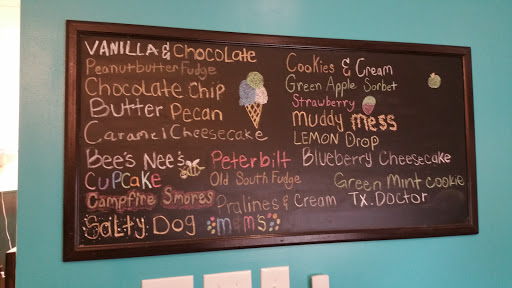 VANILLA & CHOCOLATE
Peanutbutter Fudge
Chocolate Chip
Butter Pecan
Caramel Cheesecake
Bee's Nee's
Cupcake
Campfire Smores
Salty Dog
Peterbilt
Old South Fudge
Pralines & Cream
m&m's
Cookies & Cream
Green Apple Sorbet
Strawberry
Muddy Mess
LEMON DROP
Blueberry Cheesecake
Green Mint Cookie
TX. Doctor